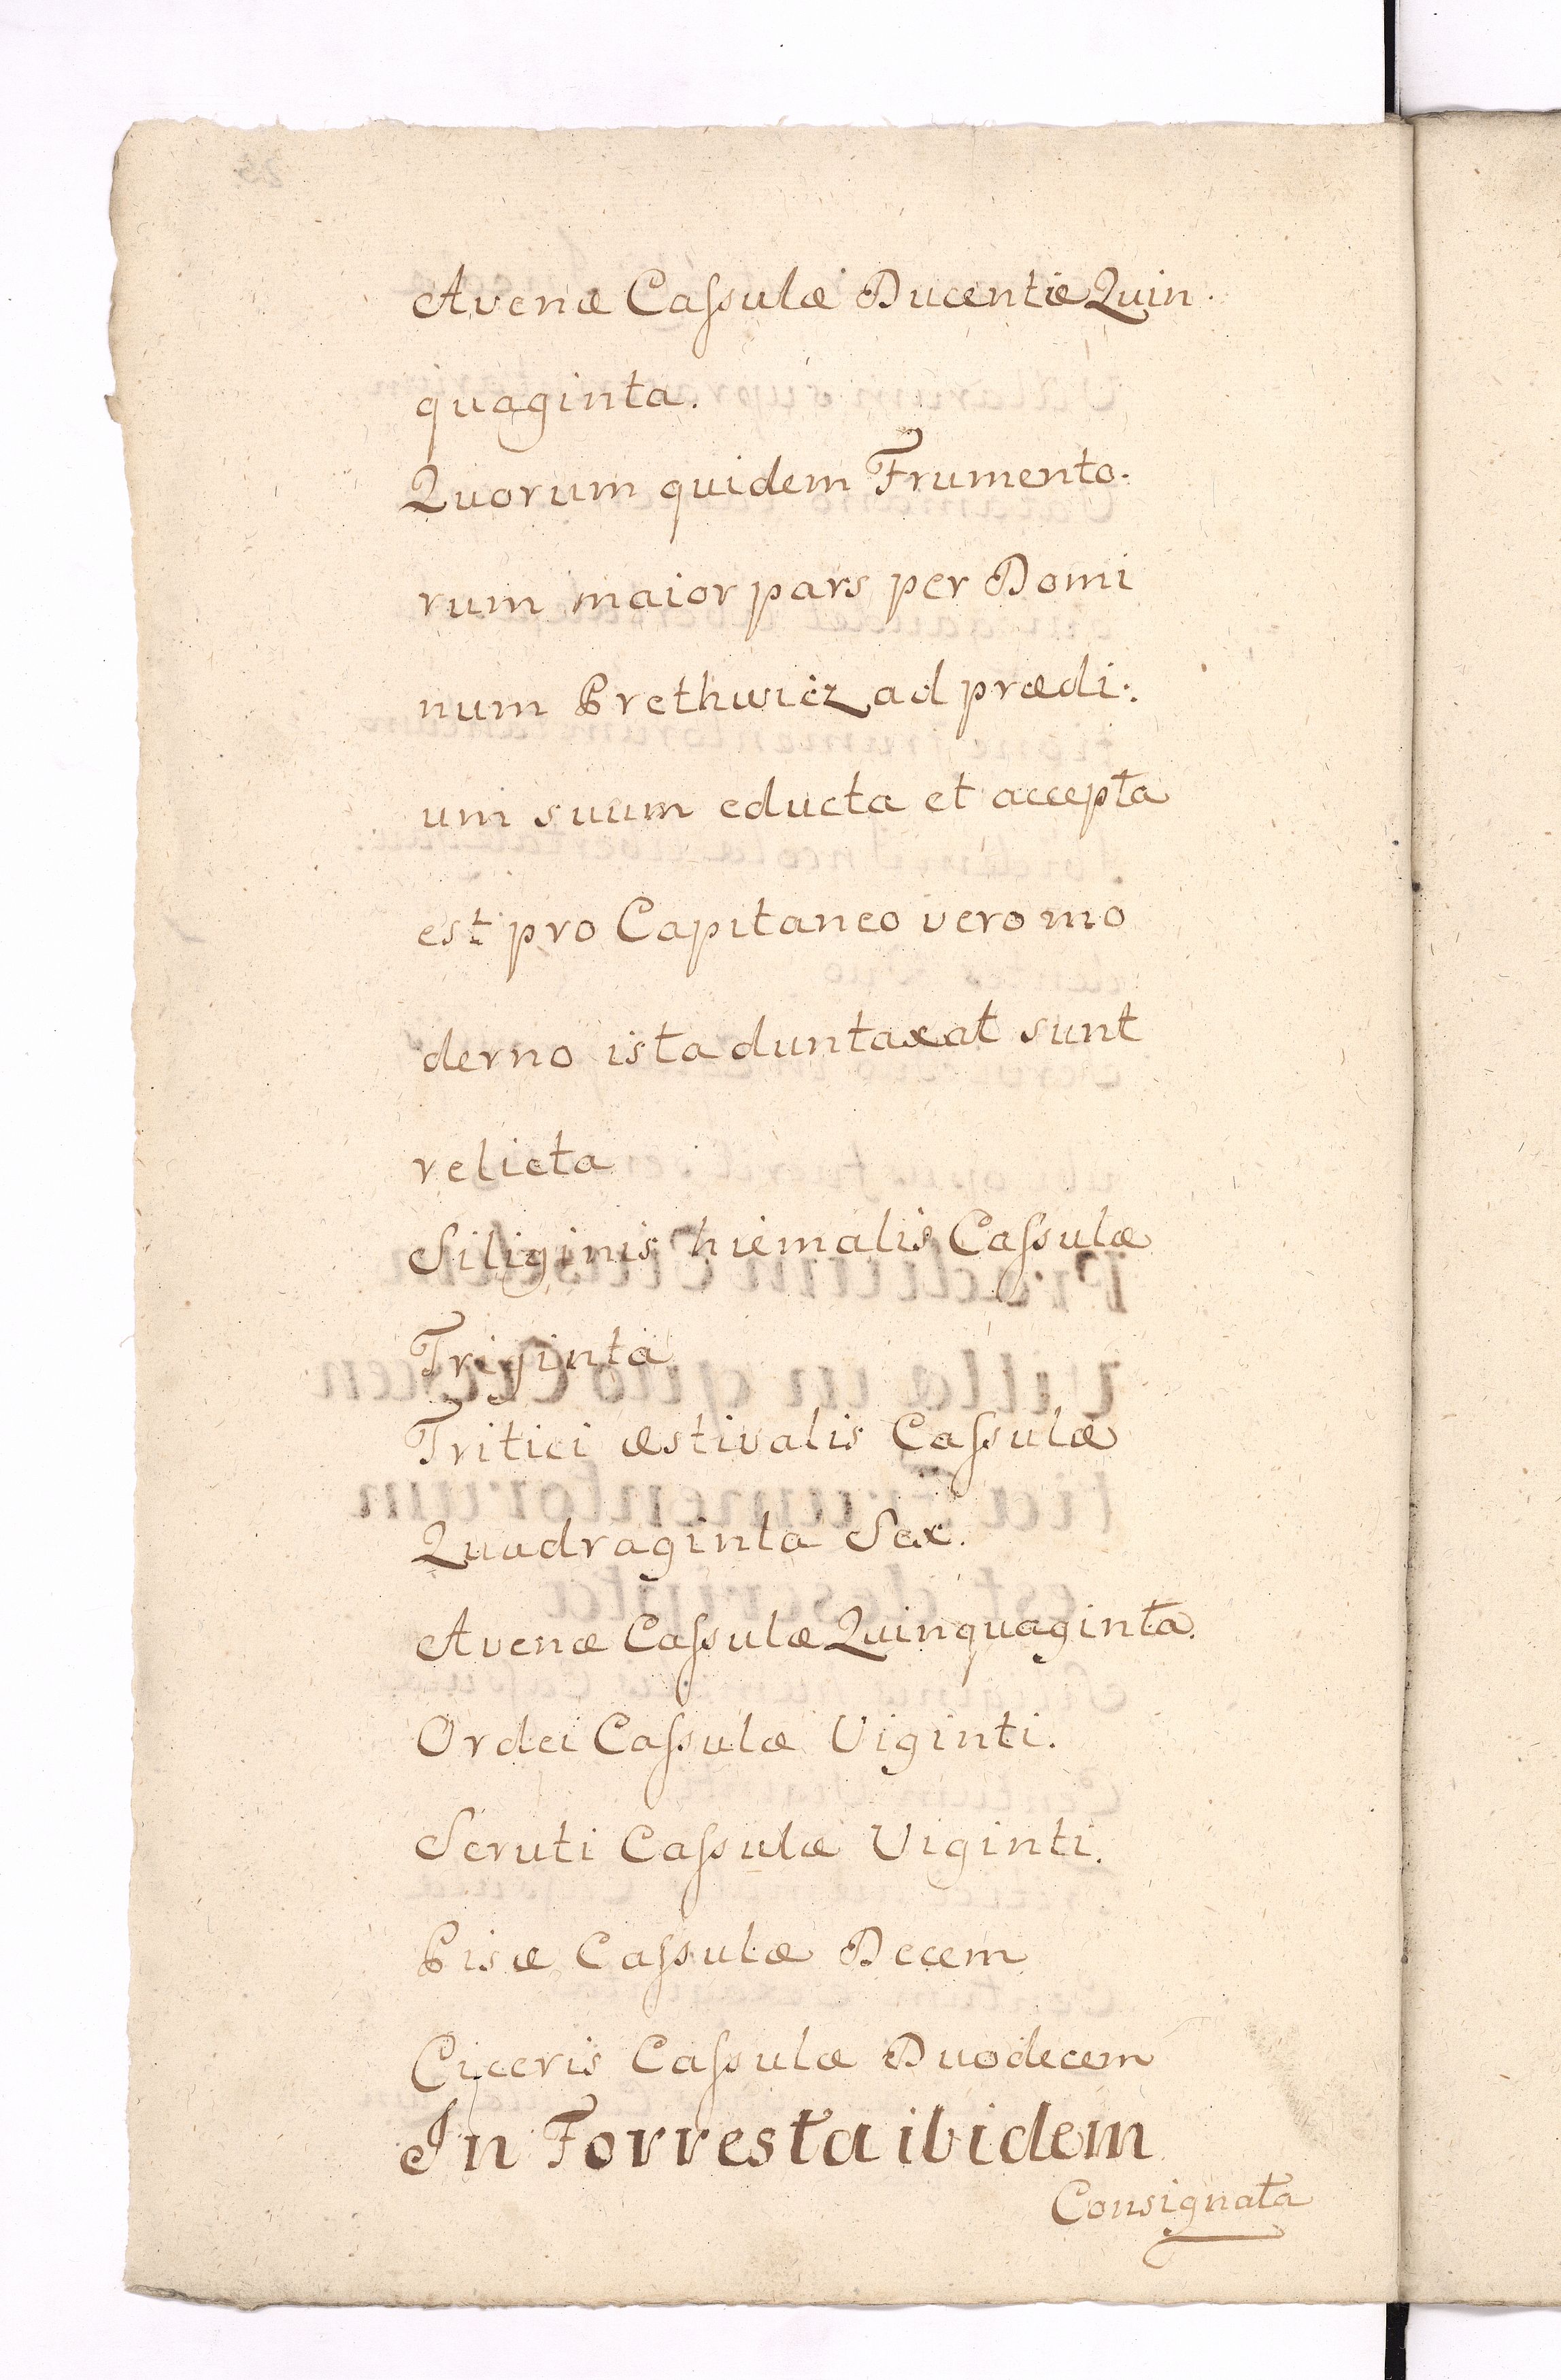 Avenæ Caſsulæ Ducentæ Quin.
quaginta.
Quorum quidem Frumento.
rum maior pars per Domi
num Prethwicz ad prædi.
um suum educta et accepta
est pro Capitaneo vero mo
derno ista duntaxat sunt
relicta
Siliginis hiemalis Caſsulæ
Triginta
Tritici æstivalis Caſsulæ
Quadraginta Sex.
Avenæ Caſsulæ Quinquaginta.
Ordei Caſsulæ Viginti.
Seruti Caſsulæ Viginti.
Pisæ Caſsulæ Decem
Ciceris Caſsulæ Duodecem
In Forresta ibidem
Consignata